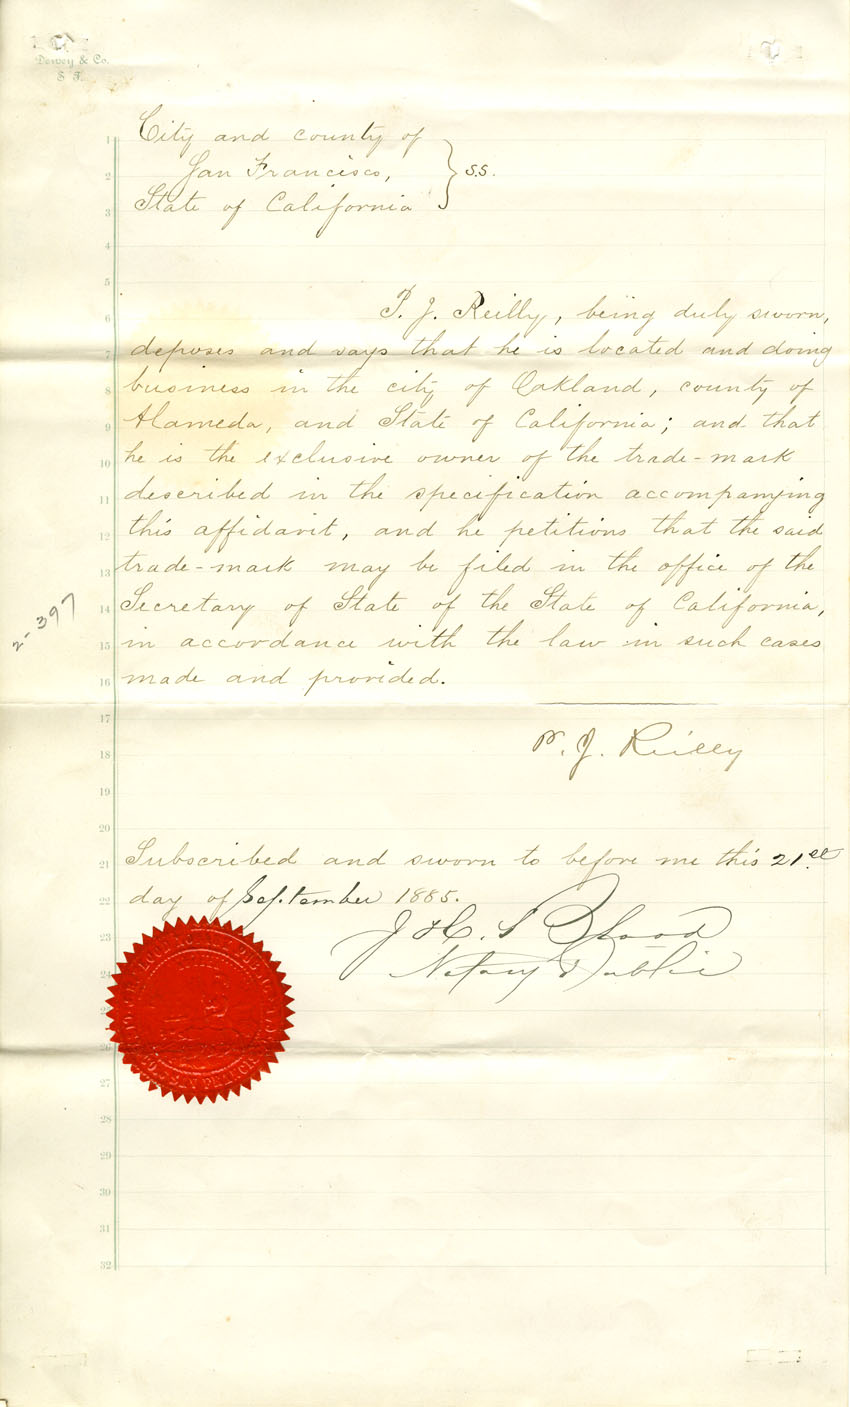 Dewey & Co.
S. F.
City and county of
San Francisco, } s.s.
State of California
P. J. Reilly, being duly sworn,
deposes and says that he is located and doing
business in the city of Oakland, county of
Alameda, and State of California; and that
he is the exclusive owner of the trade-mark
described in the specification accompanying
this affidavit, and he petitions that the said
trade-mark may be filed in the office of the
Secretary of State of the State of California,
in accordance with the law in such cases
made and provided.
2-397
P. J. Reilly
Subscribed and sworn to before me this 21st
day of September 1885.
Blood
Notary Public
1
2
3
4
5
6
7
8
9
10
11
12
13
14
15
16
17
18
19
20
21
22
23
24
25
26
27
28
29
30
31
32